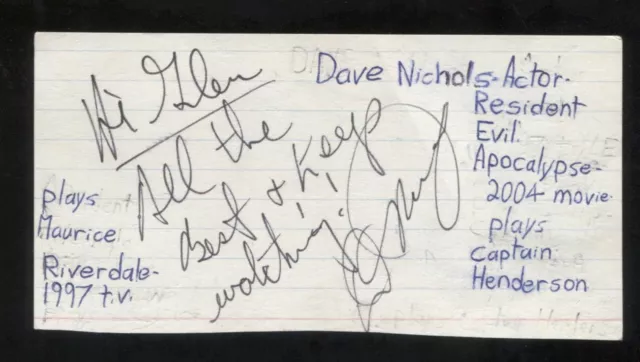 Hi Glen
All the
Best & Keep
watching!!
Dave Nichols-Actor-
Resident
Evil.
Apocalypse-
2004 movie-
plays
captain.
Henderson
plays
Maurice
Riverdale-
1997 t.v.